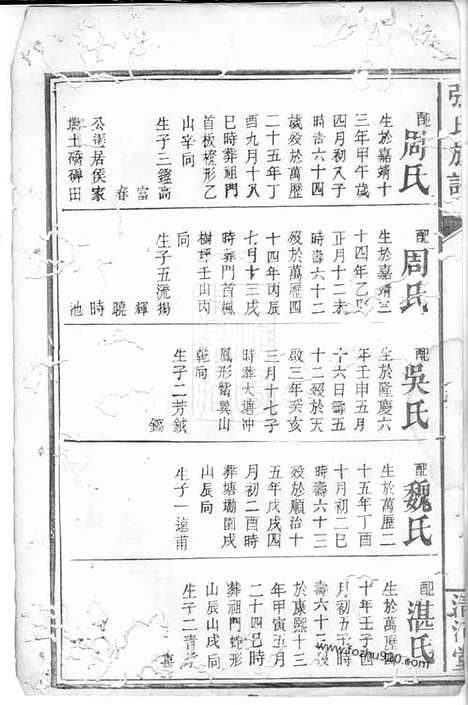 張氏族譜
清河堂
配周氏
生於嘉靖十
三年甲午歲
四月初八子
時壽六十四
歲殁於萬歷
二十五年丁
酉九月十八
巳時葬祖門
首板櫈形乙
山辛向
生子三鑑高
富
春
公遷居侯家
對土橋碑田
配周氏
生於嘉靖二
十四年乙巳
正月十二未
時壽六十二
殁於萬歷四
十四年丙辰
七月十三戌
時葬門首楓
樹坪壬山丙
向
生子五流揚
輝
曉
時
池
配吳氏
生於隆慶六
年壬申五月
十六日壽五
十二殁於天
啟三年癸亥
三月十七子
時葬大塘冲
鳳形觜巽山
乾向
生子二芳鉞
鐊
配魏氏
生於萬歷二
十五年丁酉
十月初二巳
時壽六十三
殁於順治十
五年戊戌四
月初二酉時
葬塘塝園戌
山辰向
生子一遠甫
配湛氏
生於萬歷四
十年壬子四
月初五午時
壽六十三殁
於康熙十三
年甲寅五月
二十四巳時
葬祖門蛇形
山辰山戌向
生子二青
喜
www.tozhu920.com